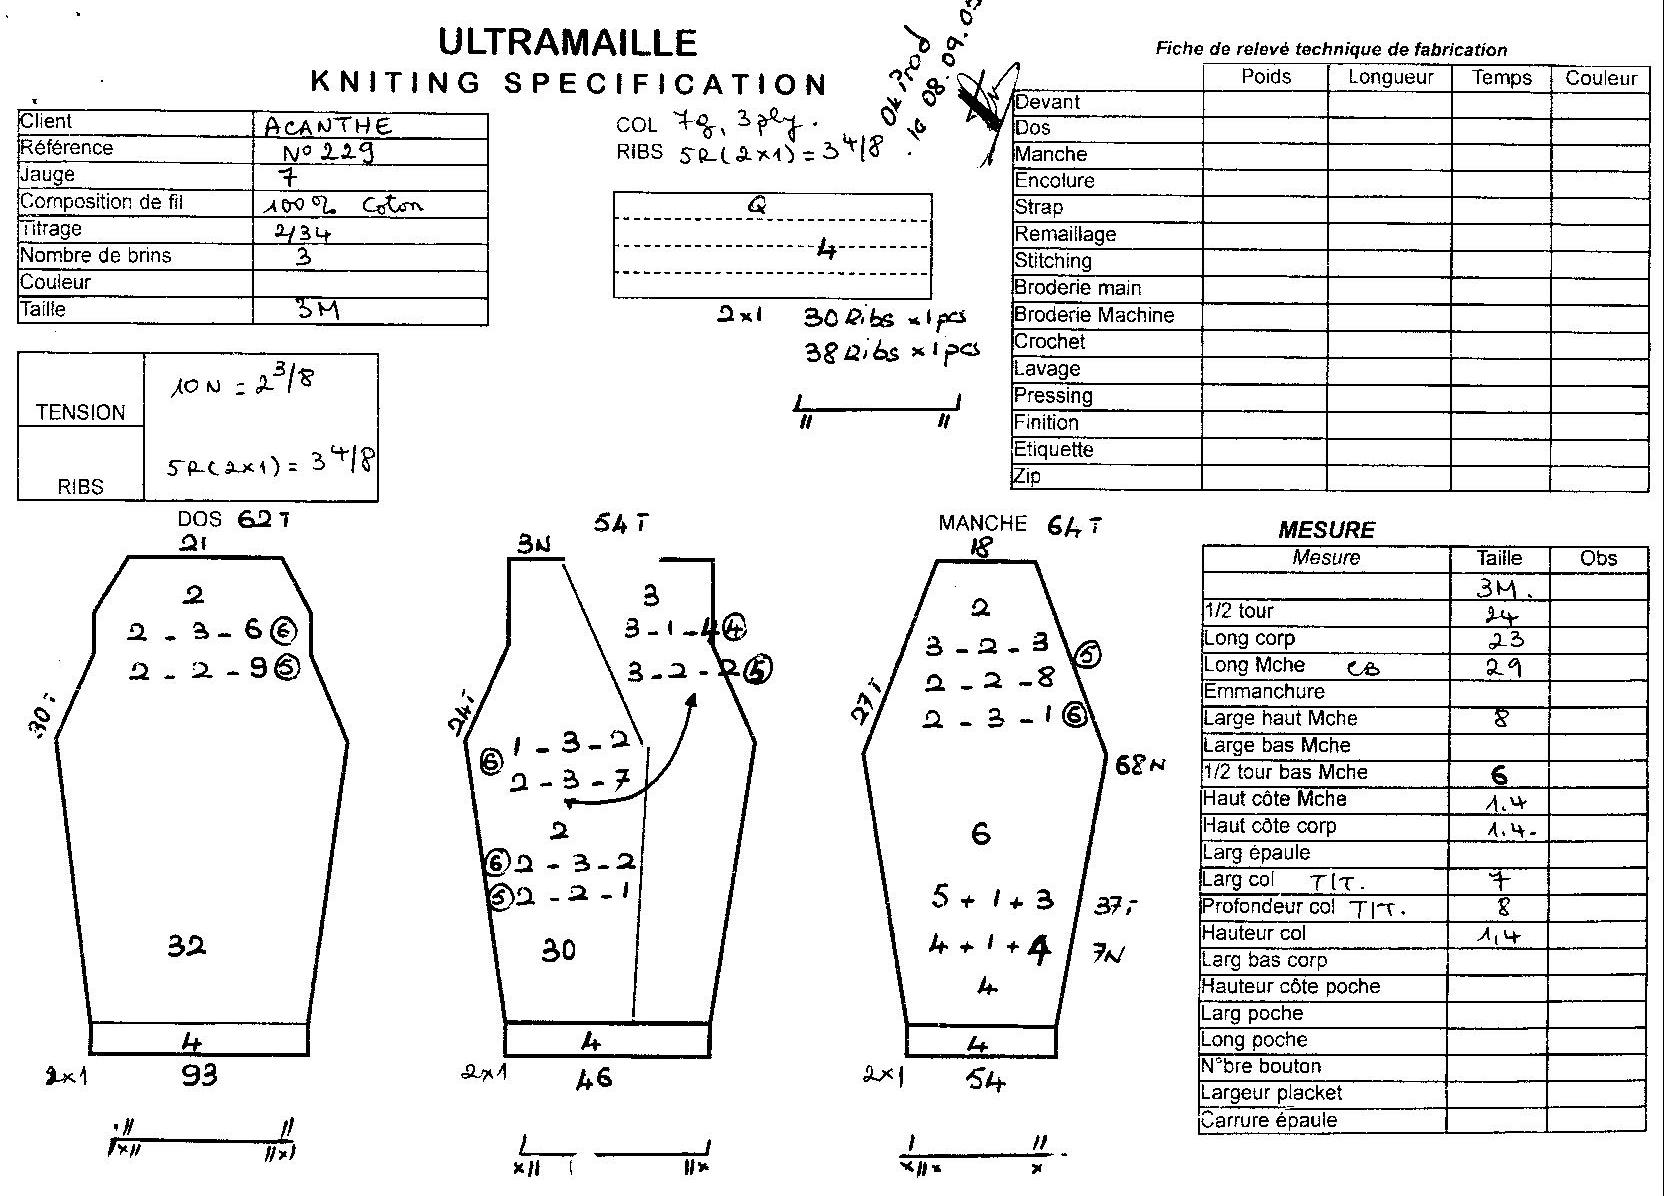 ULTRAMAILLE
KNITING SPECIFICATION
Ok Prod
le 08.09.05
Client ACANTHE
Référence N° 229
Jauge 7
Composition de fil 100% Coton
Titrage 2/34
Nombre de brins 3
Couleur
Taille 3M
TENSION 10 N = 2 3/8
RIBS 5R(2x1) = 3 4/8
COL 7g, 3ply.
RIBS 5R(2x1) = 3 4/8
Q
4
2x1 30 Ribs x 1pcs
38 Ribs x 1pcs
Fiche de relevé technique de fabrication
Poids Longueur Temps Couleur
Devant
Dos
Manche
Encolure
Strap
Remaillage
Stitching
Broderie main
Broderie Machine
Crochet
Lavage
Pressing
Finition
Etiquette
Zip
DOS 62T
21
2
2 - 3 - 6 6
2 - 2 - 9 5
30T
32
4
2x1 93
54T
3N
3
3 - 1 - 4 4
3 - 2 - 2 5
24T
6 1 - 3 - 2
2 - 3 - 7
2
6 2 - 3 - 2
5 2 - 2 - 1
30
4
2x1 46
MANCHE 64T
18
2
3 - 2 - 3 5
2 - 2 - 8
2 - 3 - 1 6
27T
68N
6
5 + 1 + 3 37T
4 + 1 + 4 7N
4
4
2x1 54
MESURE
Mesure Taille Obs
3M.
1/2 tour 24
Long corp 23
Long Mche CB 29
Emmanchure
Large haut Mche 8
Large bas Mche
1/2 tour bas Mche 6
Haut côte Mche 1.4
Haut côte corp 1.4-
Larg épaule
Larg col T/T. 7
Profondeur col T/T. 8
Hauteur col 1,4
Larg bas corp
Hauteur côte poche
Larg poche
Long poche
N°bre bouton
Largeur placket
Carrure épaule